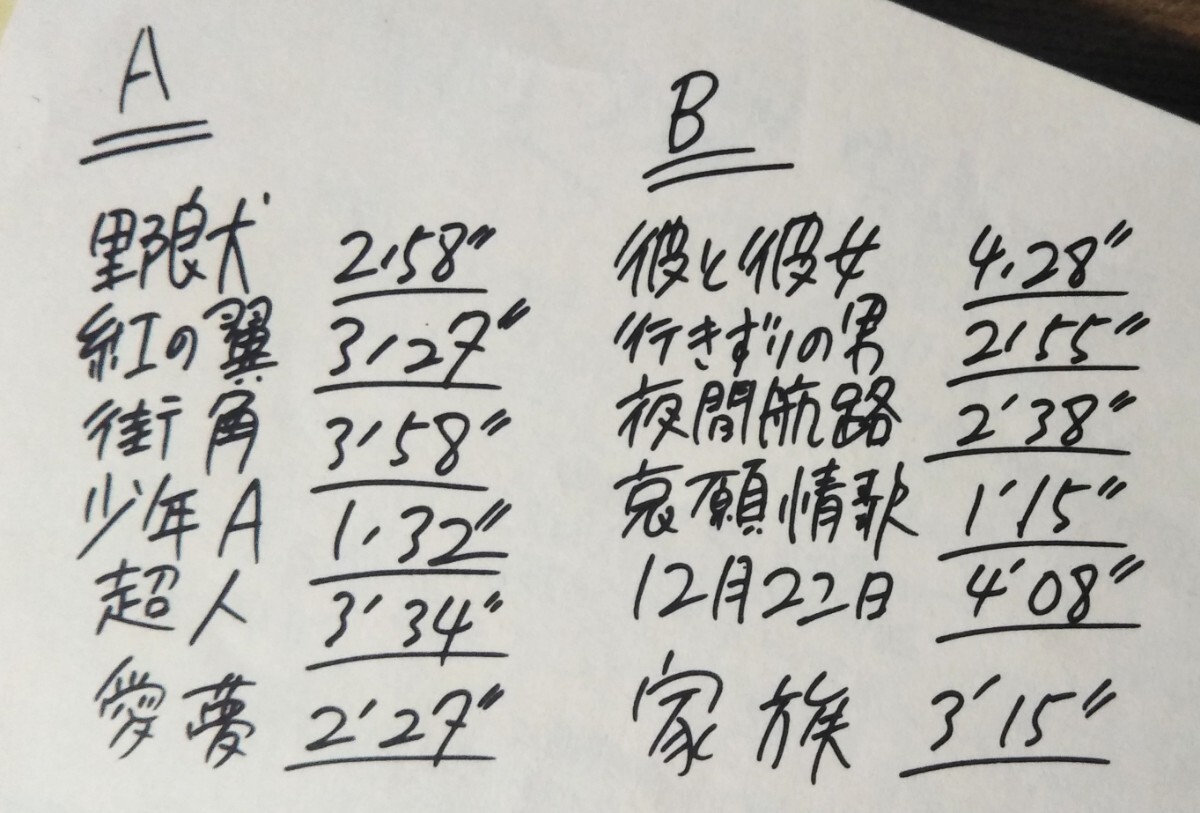 A
野良犬 2'58"
紅の翼 3'27"
街角 3'58"
少年A 1'32"
超人 3'34"
愛夢 2'27"
B
彼と彼女 4'28"
行きずりの男 2'55"
夜間航路 2'38"
哀願情歌 1'15"
12月22日 4'08"
家族 3'15"